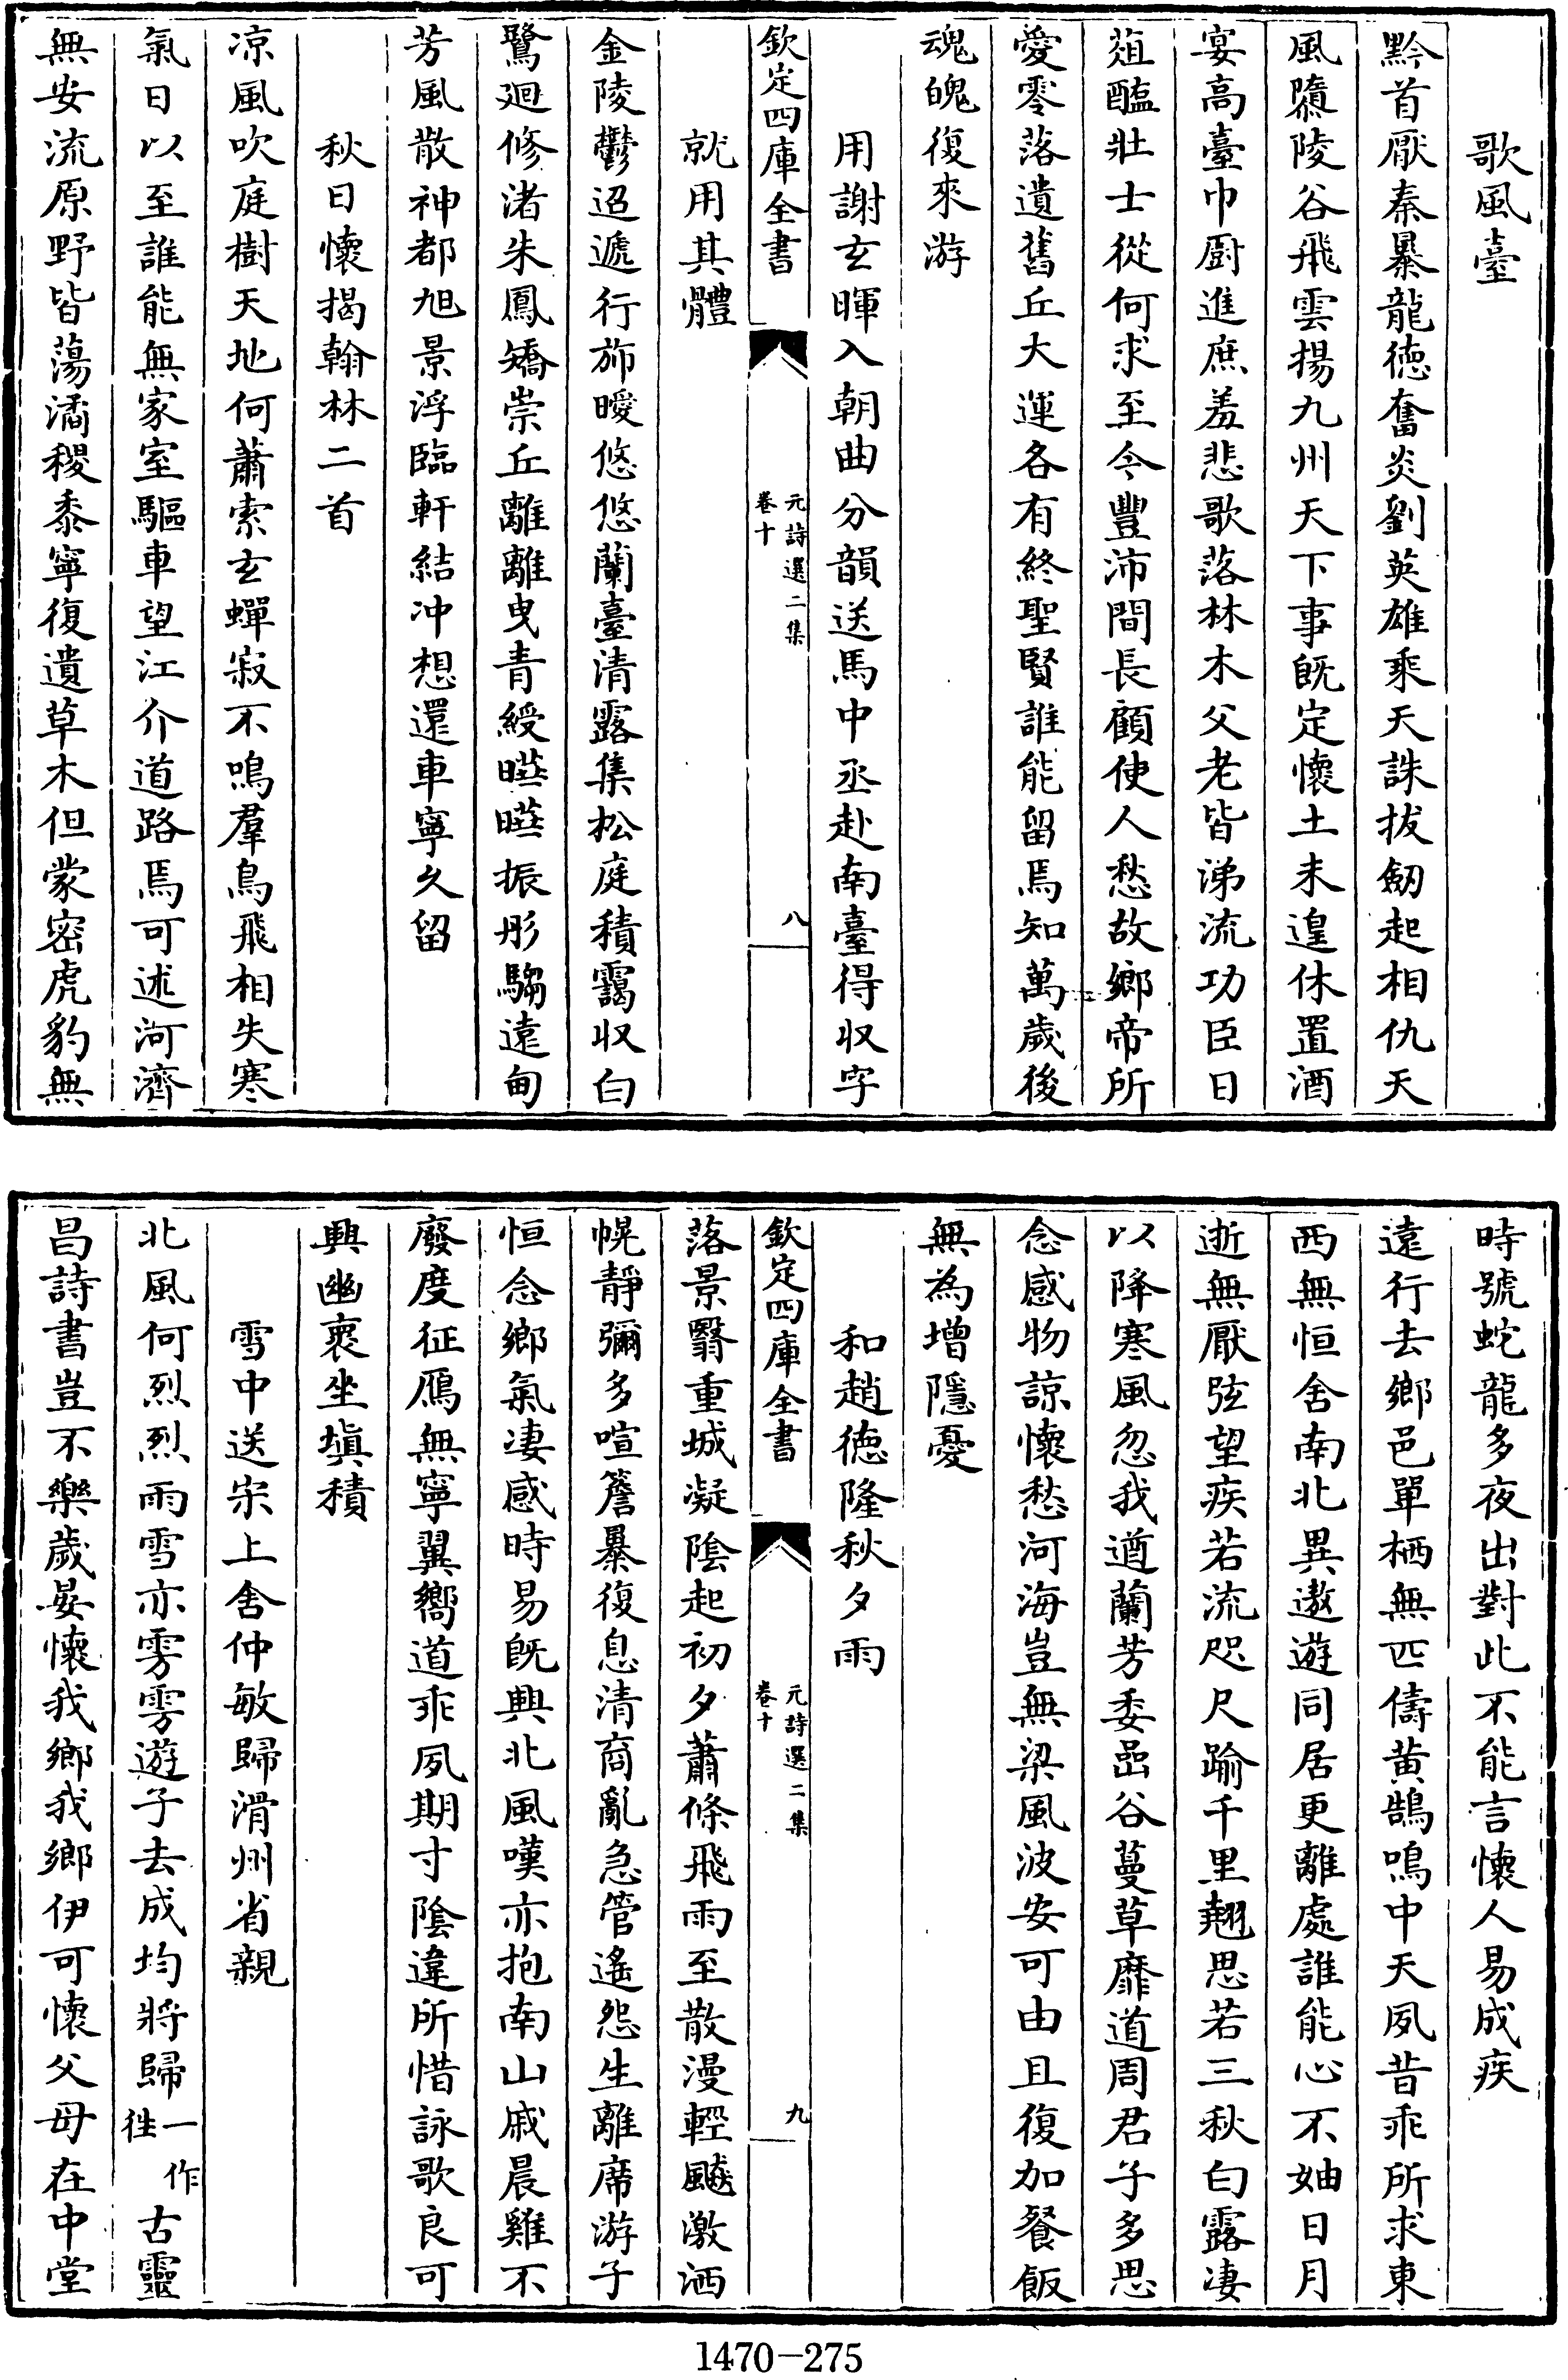 歌風臺
黔首厭秦暴龍徳奮炎劉英雄乘天誅拔劒起相仇天
風隳陵谷飛雲揚九州天下事旣定懷土未遑休置酒
宴高臺巾厨進庶羞悲歌落林木父老皆涕流功臣日
葅醢壯士從何求至今豐沛間長顧使人愁故鄉帝所
愛零落遺舊丘大運各有終聖賢誰能留焉知萬歲後
魂魄復來游
用謝玄暉入朝曲分韻送馬中丞赴南臺得収字
欽定四庫全書
元詩選二集
卷十
八
就用其體
金陵鬱迢遞行斾曖悠悠蘭臺清露集松庭積靄収白
鷺廻修渚朱鳳矯崇丘離離曳青綬曀曀振彤騶遠甸
芳風散神都旭景浮臨軒結冲想還車寧久留
秋日懷揭翰林二首
凉風吹庭樹天地何蕭索玄蟬寂不鳴羣鳥飛相失寒
氣日以至誰能無家室驅車望江介道路焉可述河濟
無安流原野皆蕩潏稷黍寧復遺草木但蒙密虎豹無
時號蛇龍多夜出對此不能言懷人易成疾
遠行去鄉邑單栖無匹儔黄鵠鳴中天夙昔乖所求東
西無恒舍南北異遨遊同居更離處誰能心不妯日月
逝無厭弦望疾若流咫尺踰千里翹思若三秋白露凄
以降寒風忽我遒蘭芳委嵒谷蔓草靡道周君子多思
念感物諒懷愁河海豈無梁風波安可由且復加餐飯
無為增隱憂
和趙徳隆秋夕雨
欽定四庫全書
元詩選二集
卷十
九
落景翳重城凝陰起初夕蕭條飛雨至散漫輕飈激洒
幌靜彌多喧簷暴復息清商亂急管遙怨生離席游子
恒念鄉氣凄感時易旣興北風嘆亦抱南山戚晨雞不
廢度征鴈無寧翼嚮道乖夙期寸陰違所惜詠歌良可
興幽裏坐塡積
雪中送宋上舍仲敏歸滑州省親
北風何烈烈雨雪亦雱雱遊子去成均將歸一作徃古靈
昌詩書豈不樂歲晏懷我鄉我鄉伊可懷父母在中堂
1470-275